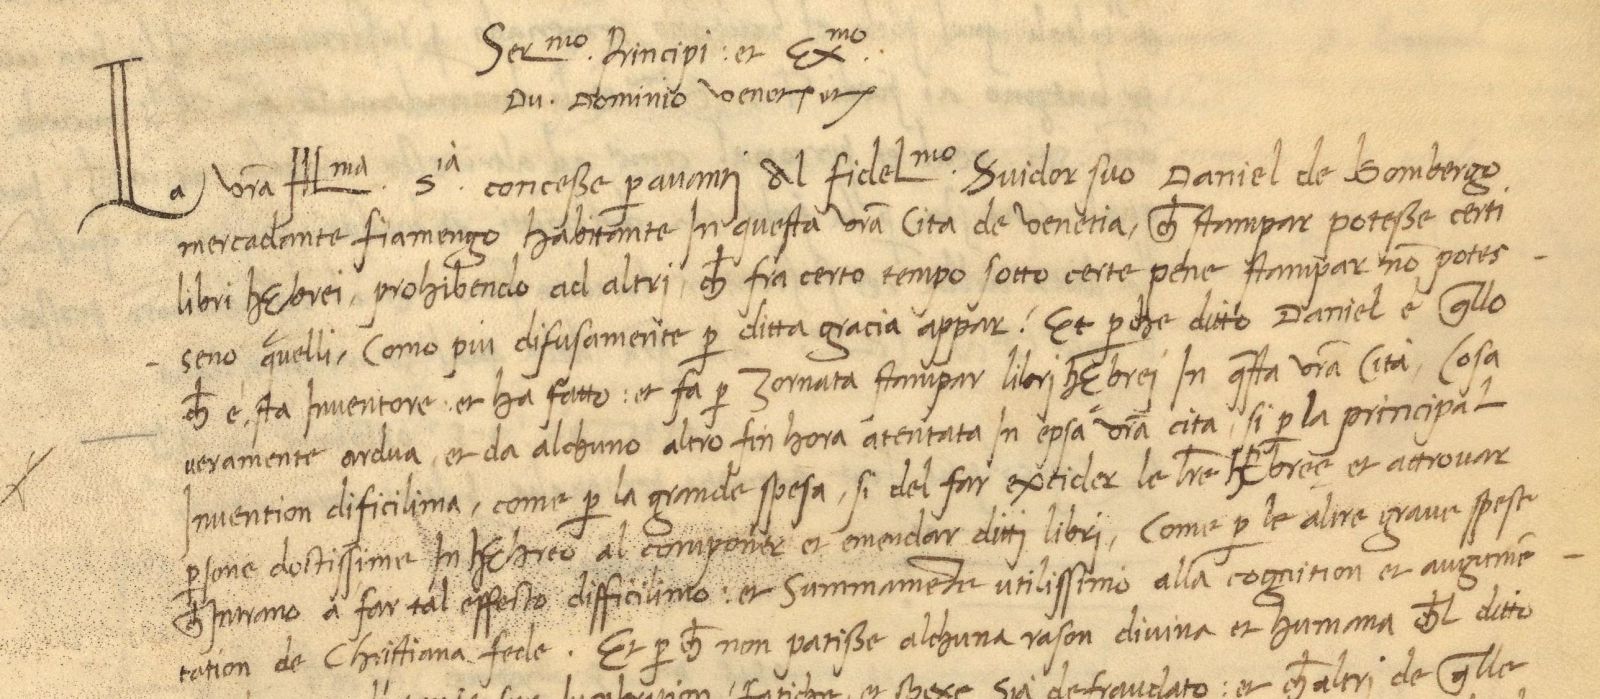 Ser.mo Principi: et Ex.mo
Du. Dominio Venet
La vra Ill.ma S.ia concesse p avanti al fidel.mo Svidor suo Daniel de Bombergo
mercadante fiamengo habitante In questa vra Cita de Venetia, ch stampar potesse certi
libri hebrei, prohibendo ad altri, ch fra certo tempo sotto certe pene stampar no potes-
seno quelli, Como piu difusamente p ditta gracia appar. Et p che ditto Daniel è qllo
ch é sta Inventore: et ha fatto: et fa p Zornata stampar libri hebrei In qsta vra Cita, Cosa
veramente ardua, et da alchuno altro fin hora atentata In epsa vra cita, si p la principal
Invention dificilima, come p la grande spesa, si del far extider le lre Hebree et attrovar
psone doctissime In hebreo al componer et emendar ditti libri, Come p le altre grave spese
ch Intrano a far tal effecto difficilimo: et summamente utilissimo alla cognition et augume-
tation de Christiana fede. Et p ch non patisse alchuna rason divina et humana ch l ditto
fatiche, et spexe sia defraudato: et ch altri de qlle